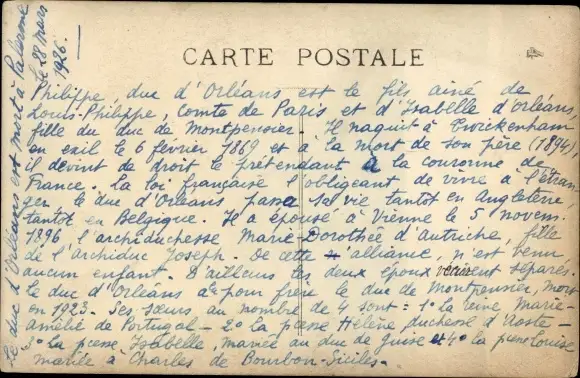 CARTE POSTALE
Philippe, duc d'Orléans est le fils ainé de
Louis-Philippe, comte de Paris et d'Isabelle d'Orléans,
fille du duc de Montpensier. Il naquit à Twickenham
en exil le 6 février 1869 et à la mort de son père (1894),
il devint de droit le prétendant à la couronne de
France. La loi française l'obligeant de vivre à l'étran-
ger le duc d'Orléans passa sa vie tantôt en Angleterre,
tantôt en Belgique. Il a épousé à Vienne le 5 novem.
1896 l'archiduchesse Marie-Dorothée d'Autriche, fille
de l'archiduc Joseph. De cette alliance, n'est venu
aucun enfant. D'ailleurs les deux époux vécurent séparés.
Le duc d'Orléans a pour frère le duc de Montpensier, mort
en 1923. Ses sœurs au nombre de 4 sont : 1° la reine Marie-
Amélie de Portugal - 2° la pcesse Hélène, duchesse d'Aoste -
3° la pcesse Isabelle, mariée au duc de Guise et 4° la Louise
mariée à Charles de Bourbon-Siciles -
Le duc d'Orléans est mort à Palerme
le 28 mars
1926.